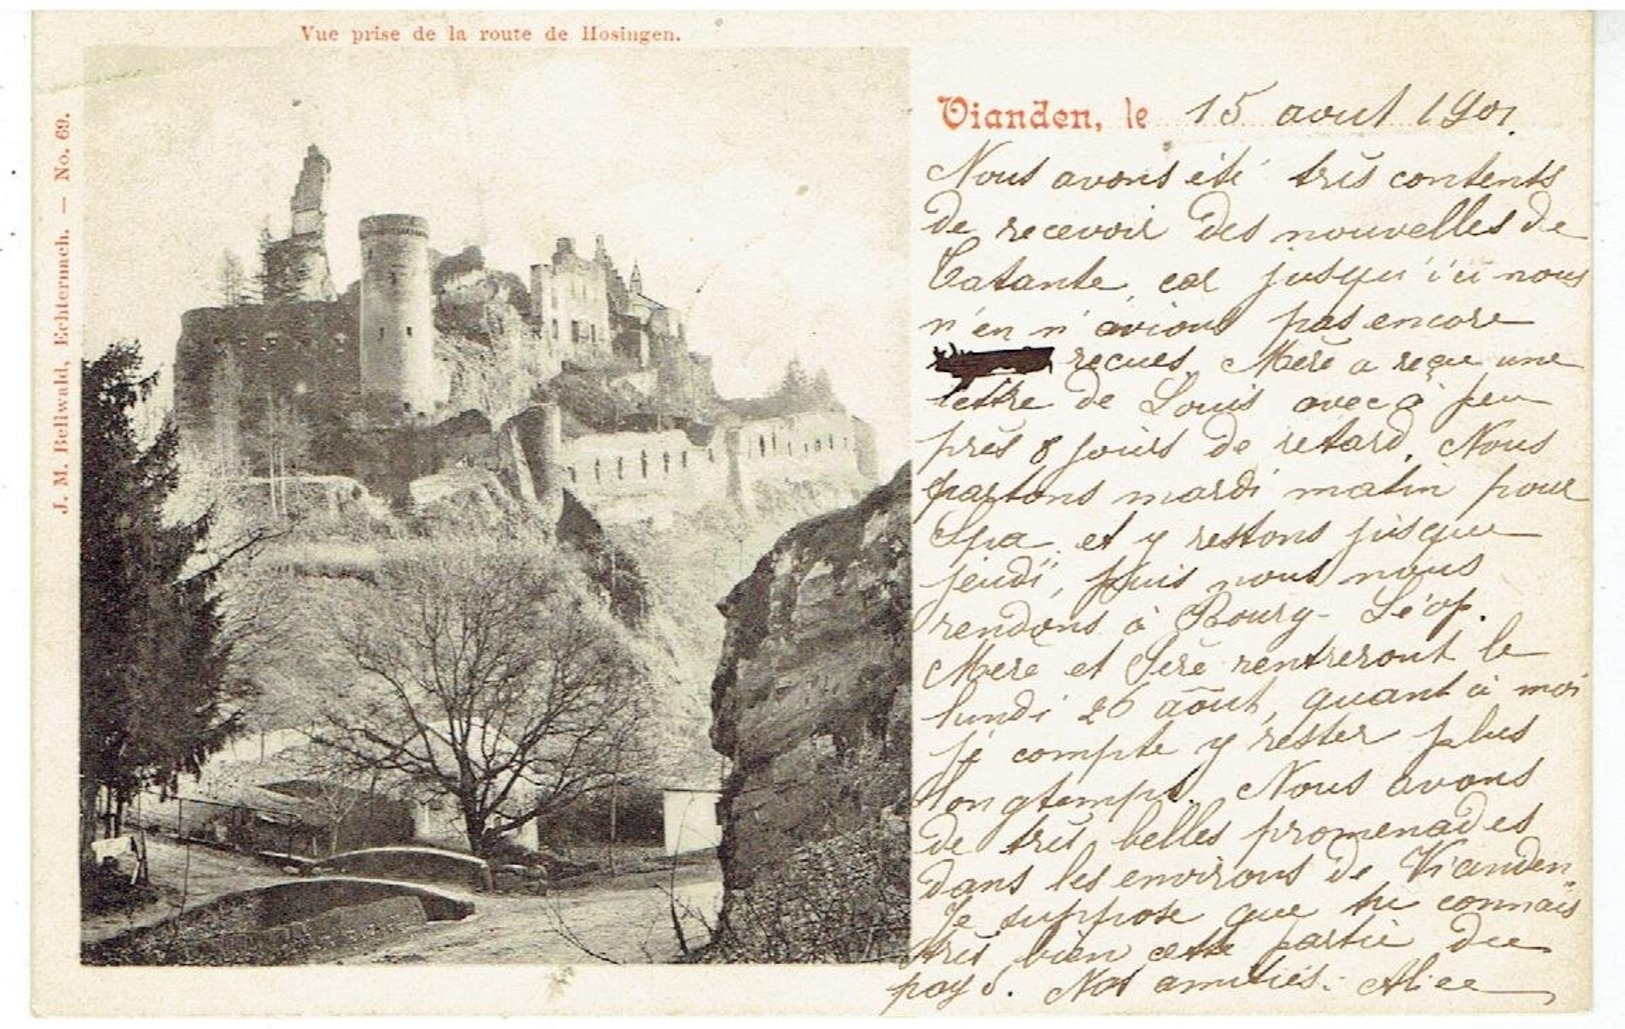 Vue prise de la route de Hosingen.
J. M. Bellwald, Echternach. — No. 69.
Vianden, le 15 aout 1901.
Nous avons été très contents
de recevoir des nouvelles de
Tatante, car jusqu'ici nous
n'en n'avions pas encore
recues. Mère a reçu une
lettre de Louis avec à peu
près 8 jours de retard. Nous
partons mardi matin pour
Spa et y restons jusque
jeudi, puis nous nous
rendons à Bourg-Léop.
Mère et Père rentreront le
lundi 26 août, quant à moi
je compte y rester plus
longtemps. Nous avons
de très belles promenades
dans les environs de Vianden.
Je suppose que tu connais
très bien cette partie du
pays. Nos amitiés. Alice